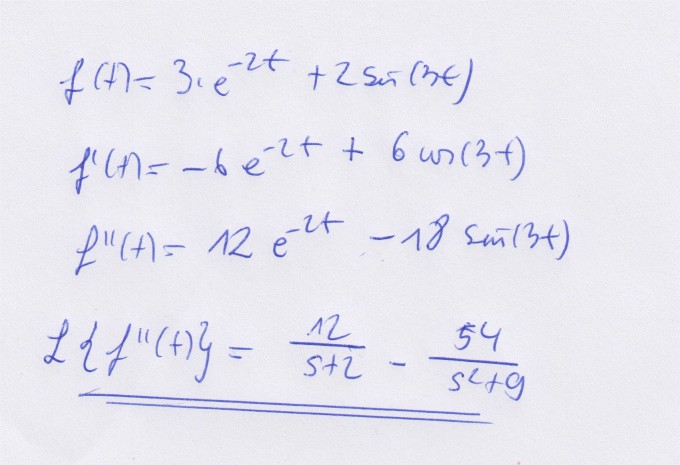 f(t) = 3·e^{-2t} + 2 sin(3t)
f'(t) = -6 e^{-2t} + 6 cos(3t)
f''(t) = 12 e^{-2t} - 18 sin(3t)
ℒ{f''(t)} = \frac{12}{s+2} - \frac{54}{s^2+9}